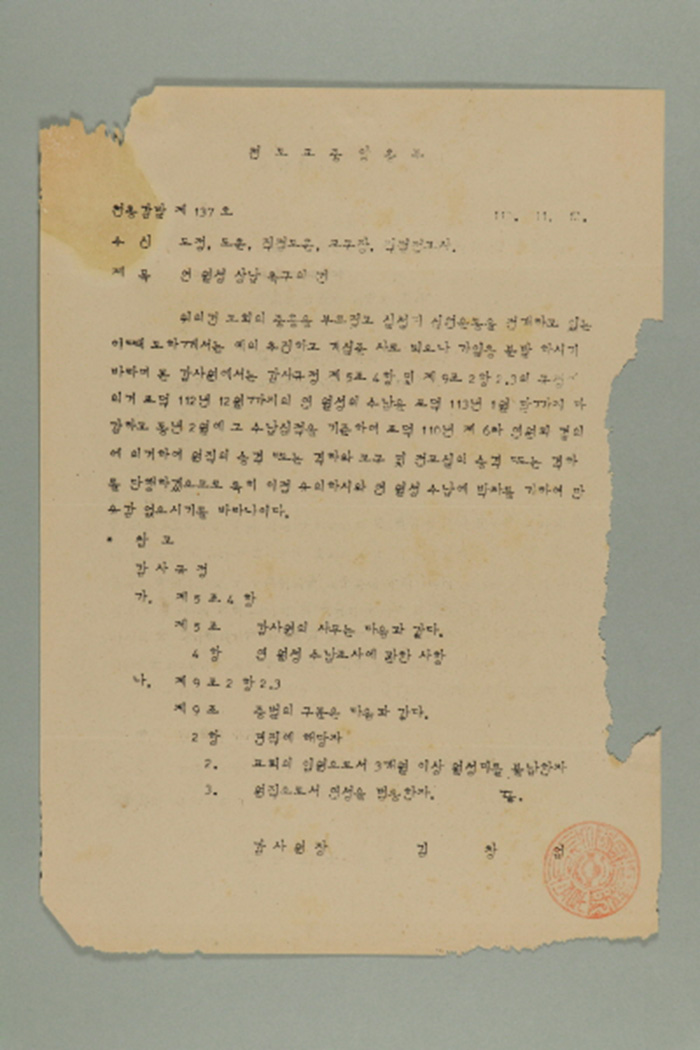 천도교중앙총부
천총감발 제 137 호
수 신 도정, 도훈, 직접도훈, 교구장,
제 목 연 월성 상납 촉구의 건
위의건 교회의 중흥을 부르짖고 신앙운동을 전개하고 있는
이때에 분발 하시기
바라며 본 감사원에서는 감사규정 제5조 4항 및 제9조 2항 2.3의
의거 포덕 112년 12월까지의 연 월성의 수납을 포덕 113년 1월 말까지 마
감하고 동년 2월에 그 수납실적을 기준하여 포덕 110년 제 6차 연원회 결의
에 의거하여 원직의 승격 또는 격하와 교구 및 전교실의 승격 또는 격하
를 단행하겠으므로 특히 이점 유의하시와 연 월성 수납에 박차를 가하여 만
유감 없으시기를 바라나이다.
* 참 고
감 사 규 정
가. 제 5 조 4 항
제 5 조 감사원의 사무는 다음과 같다.
4 항 연 월성 수납조사에 관한 사항
나. 제 9 조 2 항 2.3
제 9 조 중벌의 구분은 다음과 같다.
2 항 면직에 해당자
2. 교회의 임원으로서 3개월 이상 월성미를 불납한자
3. 원직으로서 연성을 범용한자. 끝.
감 사 원 장 김 창